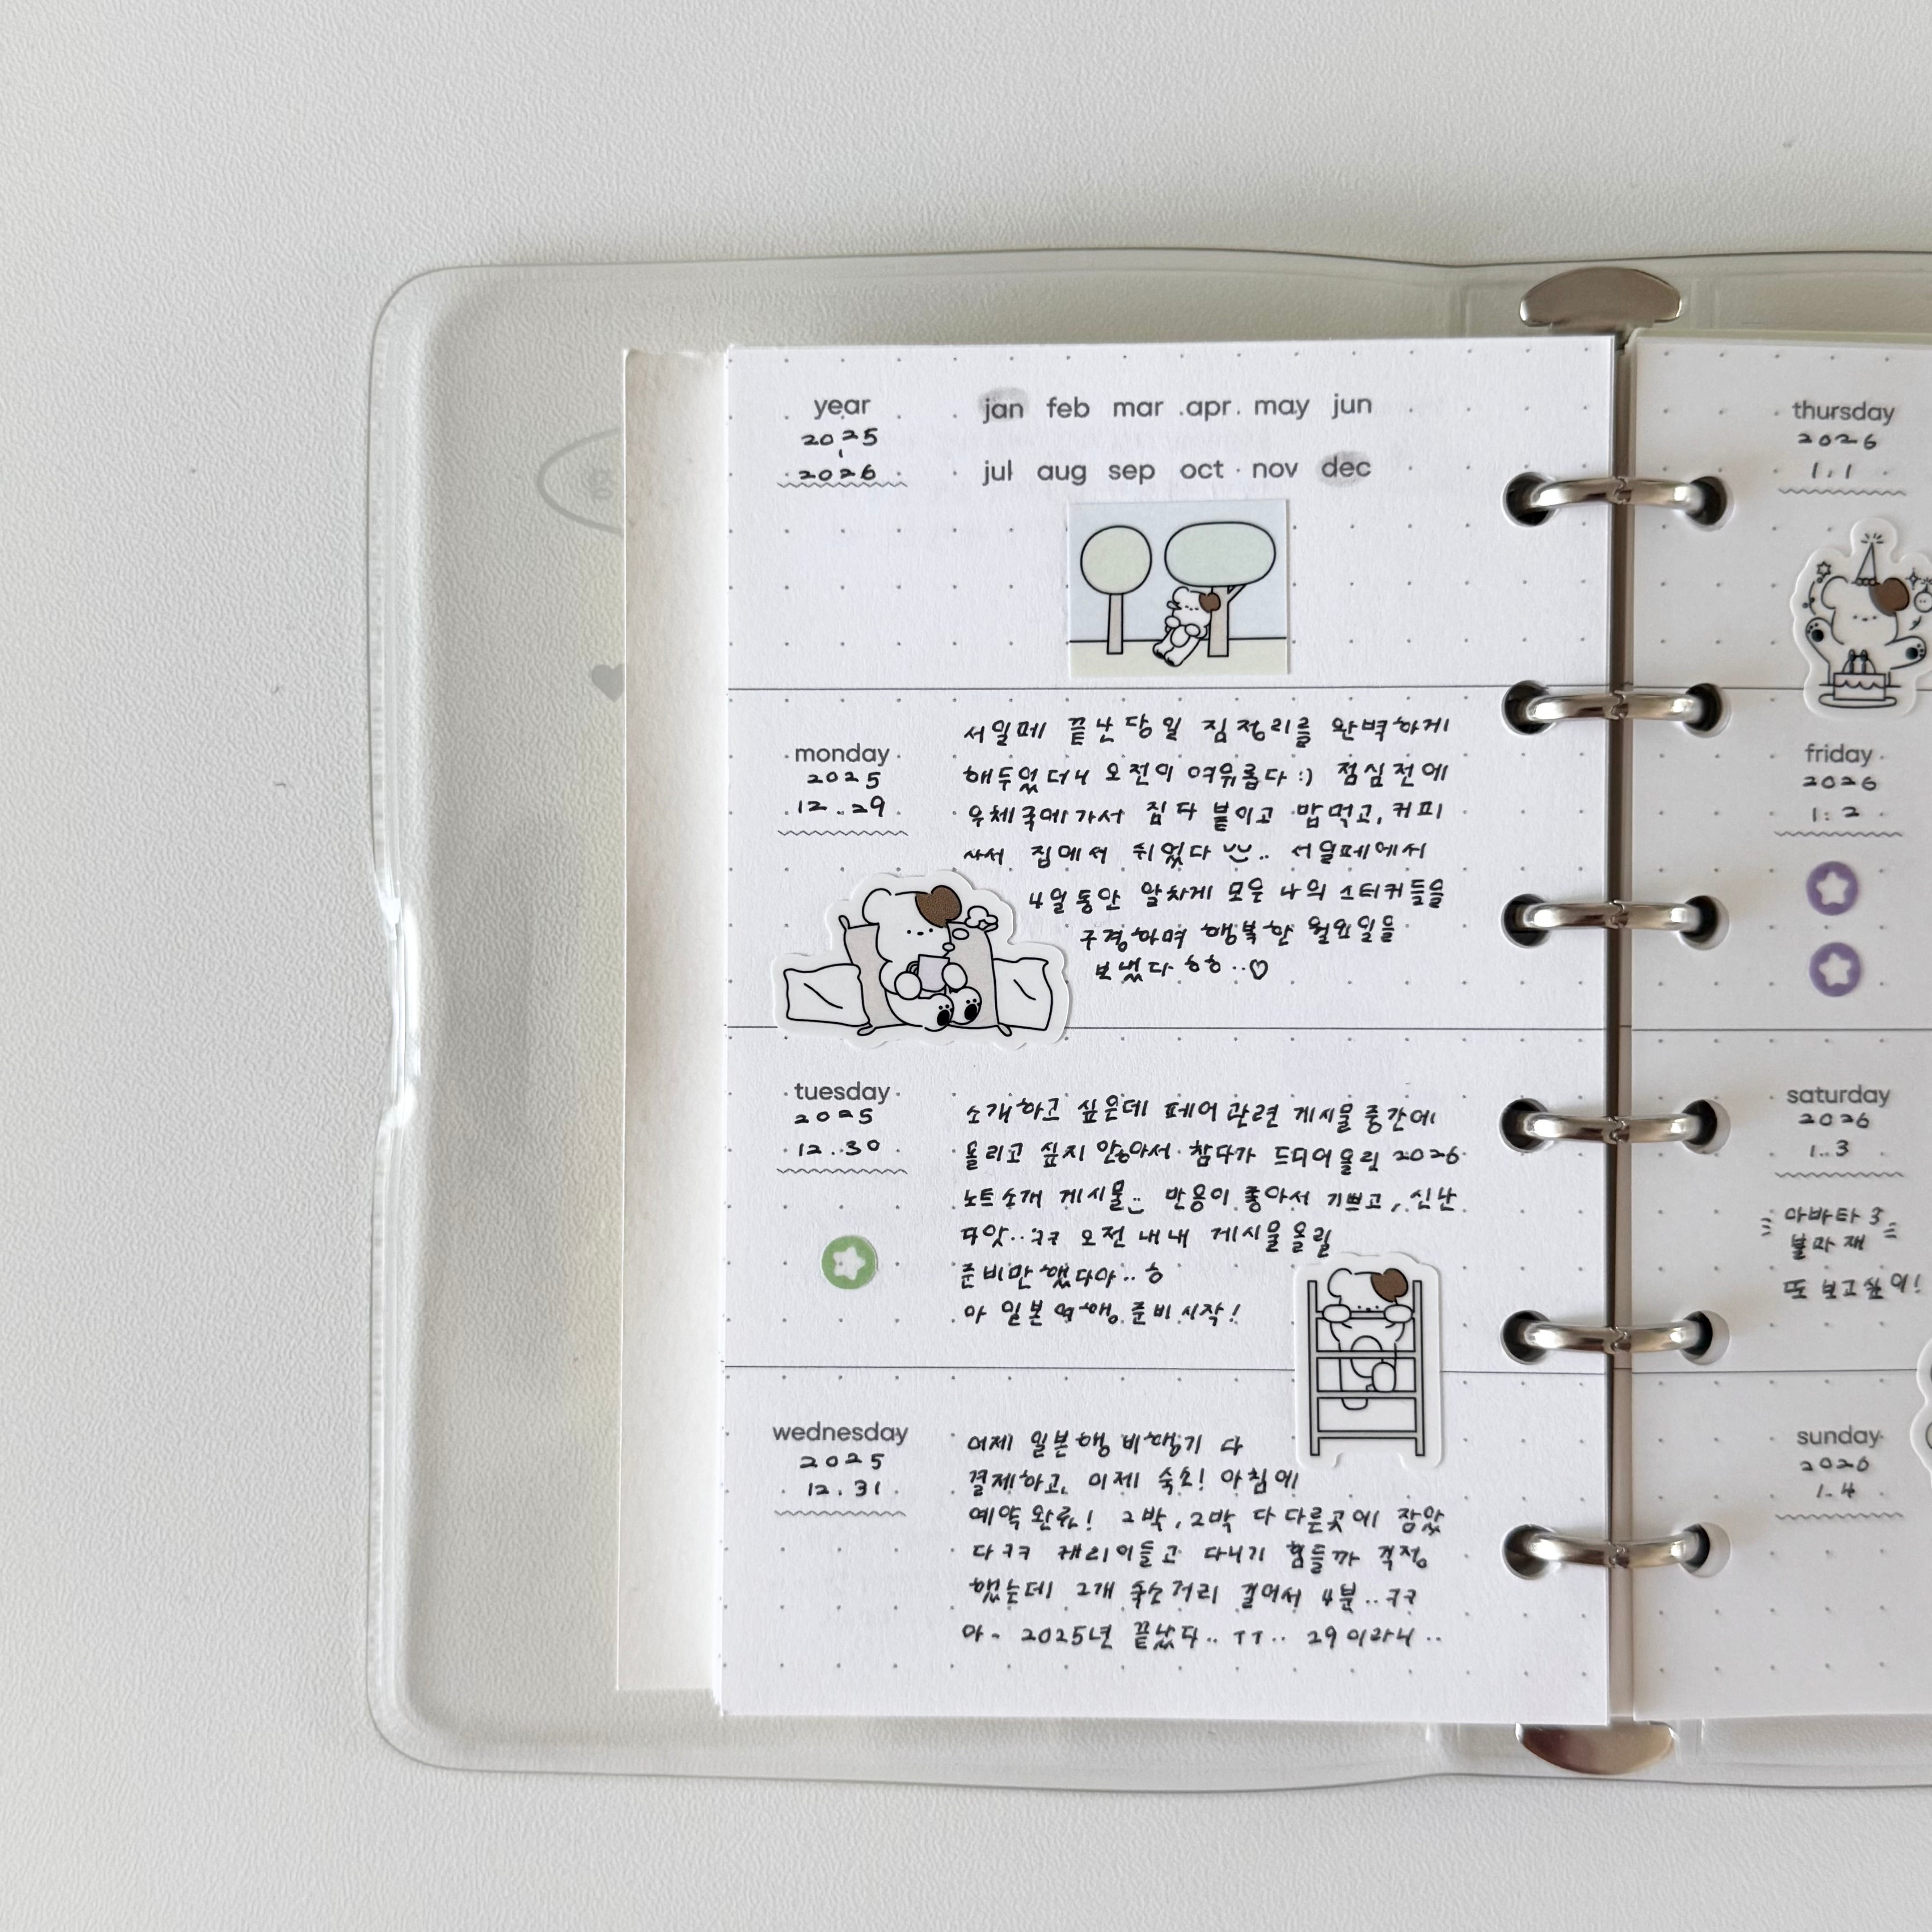 year
2025
2026
jan feb mar apr may jun
jul aug sep oct nov dec
monday
2025
12. 29
서일페 끝난 당일 짐정리를 완벽하게
해두었더니 오전이 여유롭다 :) 점심 전에
우체국에 가서 짐 다 붙이고 밥먹고, 커피
사서 집에서 쉬었다 .. 서일페에서
4일동안 알차게 모은 나의 스티커들을
구경하며 행복한 월요일을
보냈다 ㅎㅎ..♡
tuesday
2025
12. 30
소개하고 싶은데 페어 관련 게시물 중간에
올리고 싶지 않아서 참다가 드디어 올린 2026
노트소개 게시물.. 반응이 좋아서 기쁘고, 신난
다앗..ㅋㅋ 오전 내내 게시물 올릴
준비만 했다아..ㅎ
아 일본여행 준비시작!
wednesday
2025
12. 31
어제 일본행 비행기 다
결제하고, 이제 숙소! 아침에
예약 완료! 2박, 2박 다 다른곳에 잡았
다 ㅋㅋ 캐리어들고 다니기 힘들까 걱정
했는데 2개 숙소거리 걸어서 4분..ㅋㅋ
아~ 2025년 끝났다.. ㅜㅜ.. 29이라니..
thursday
2026
1. 1
friday
2026
1. 2
saturday
2026
1. 3
아바타 3
불과 재
또 보고싶어!
sunday
2026
1. 4